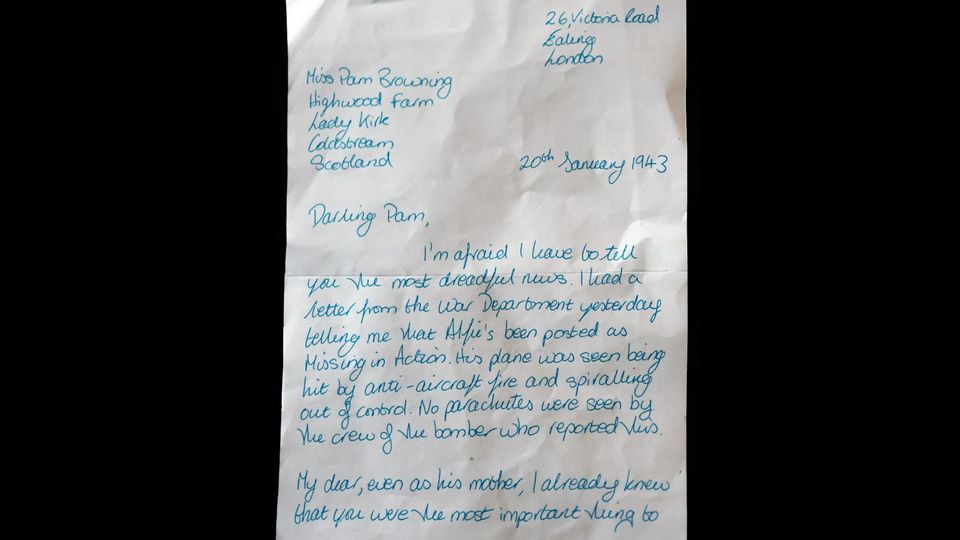 26, Victoria Road
Ealing
London
Miss Pam Browning
Highwood Farm
Lady Kirk
Coldstream
Scotland
20th January 1943
Darling Pam,
I'm afraid I have to tell
you the most dreadful news. I had a
letter from the War Department yesterday
telling me that Alfie's been posted as
Missing in Action. His plane was seen being
hit by anti-aircraft fire and spiralling
out of control. No parachutes were seen by
the crew of the bomber who reported this.
My dear, even as his mother, I already knew
that you were the most important thing to